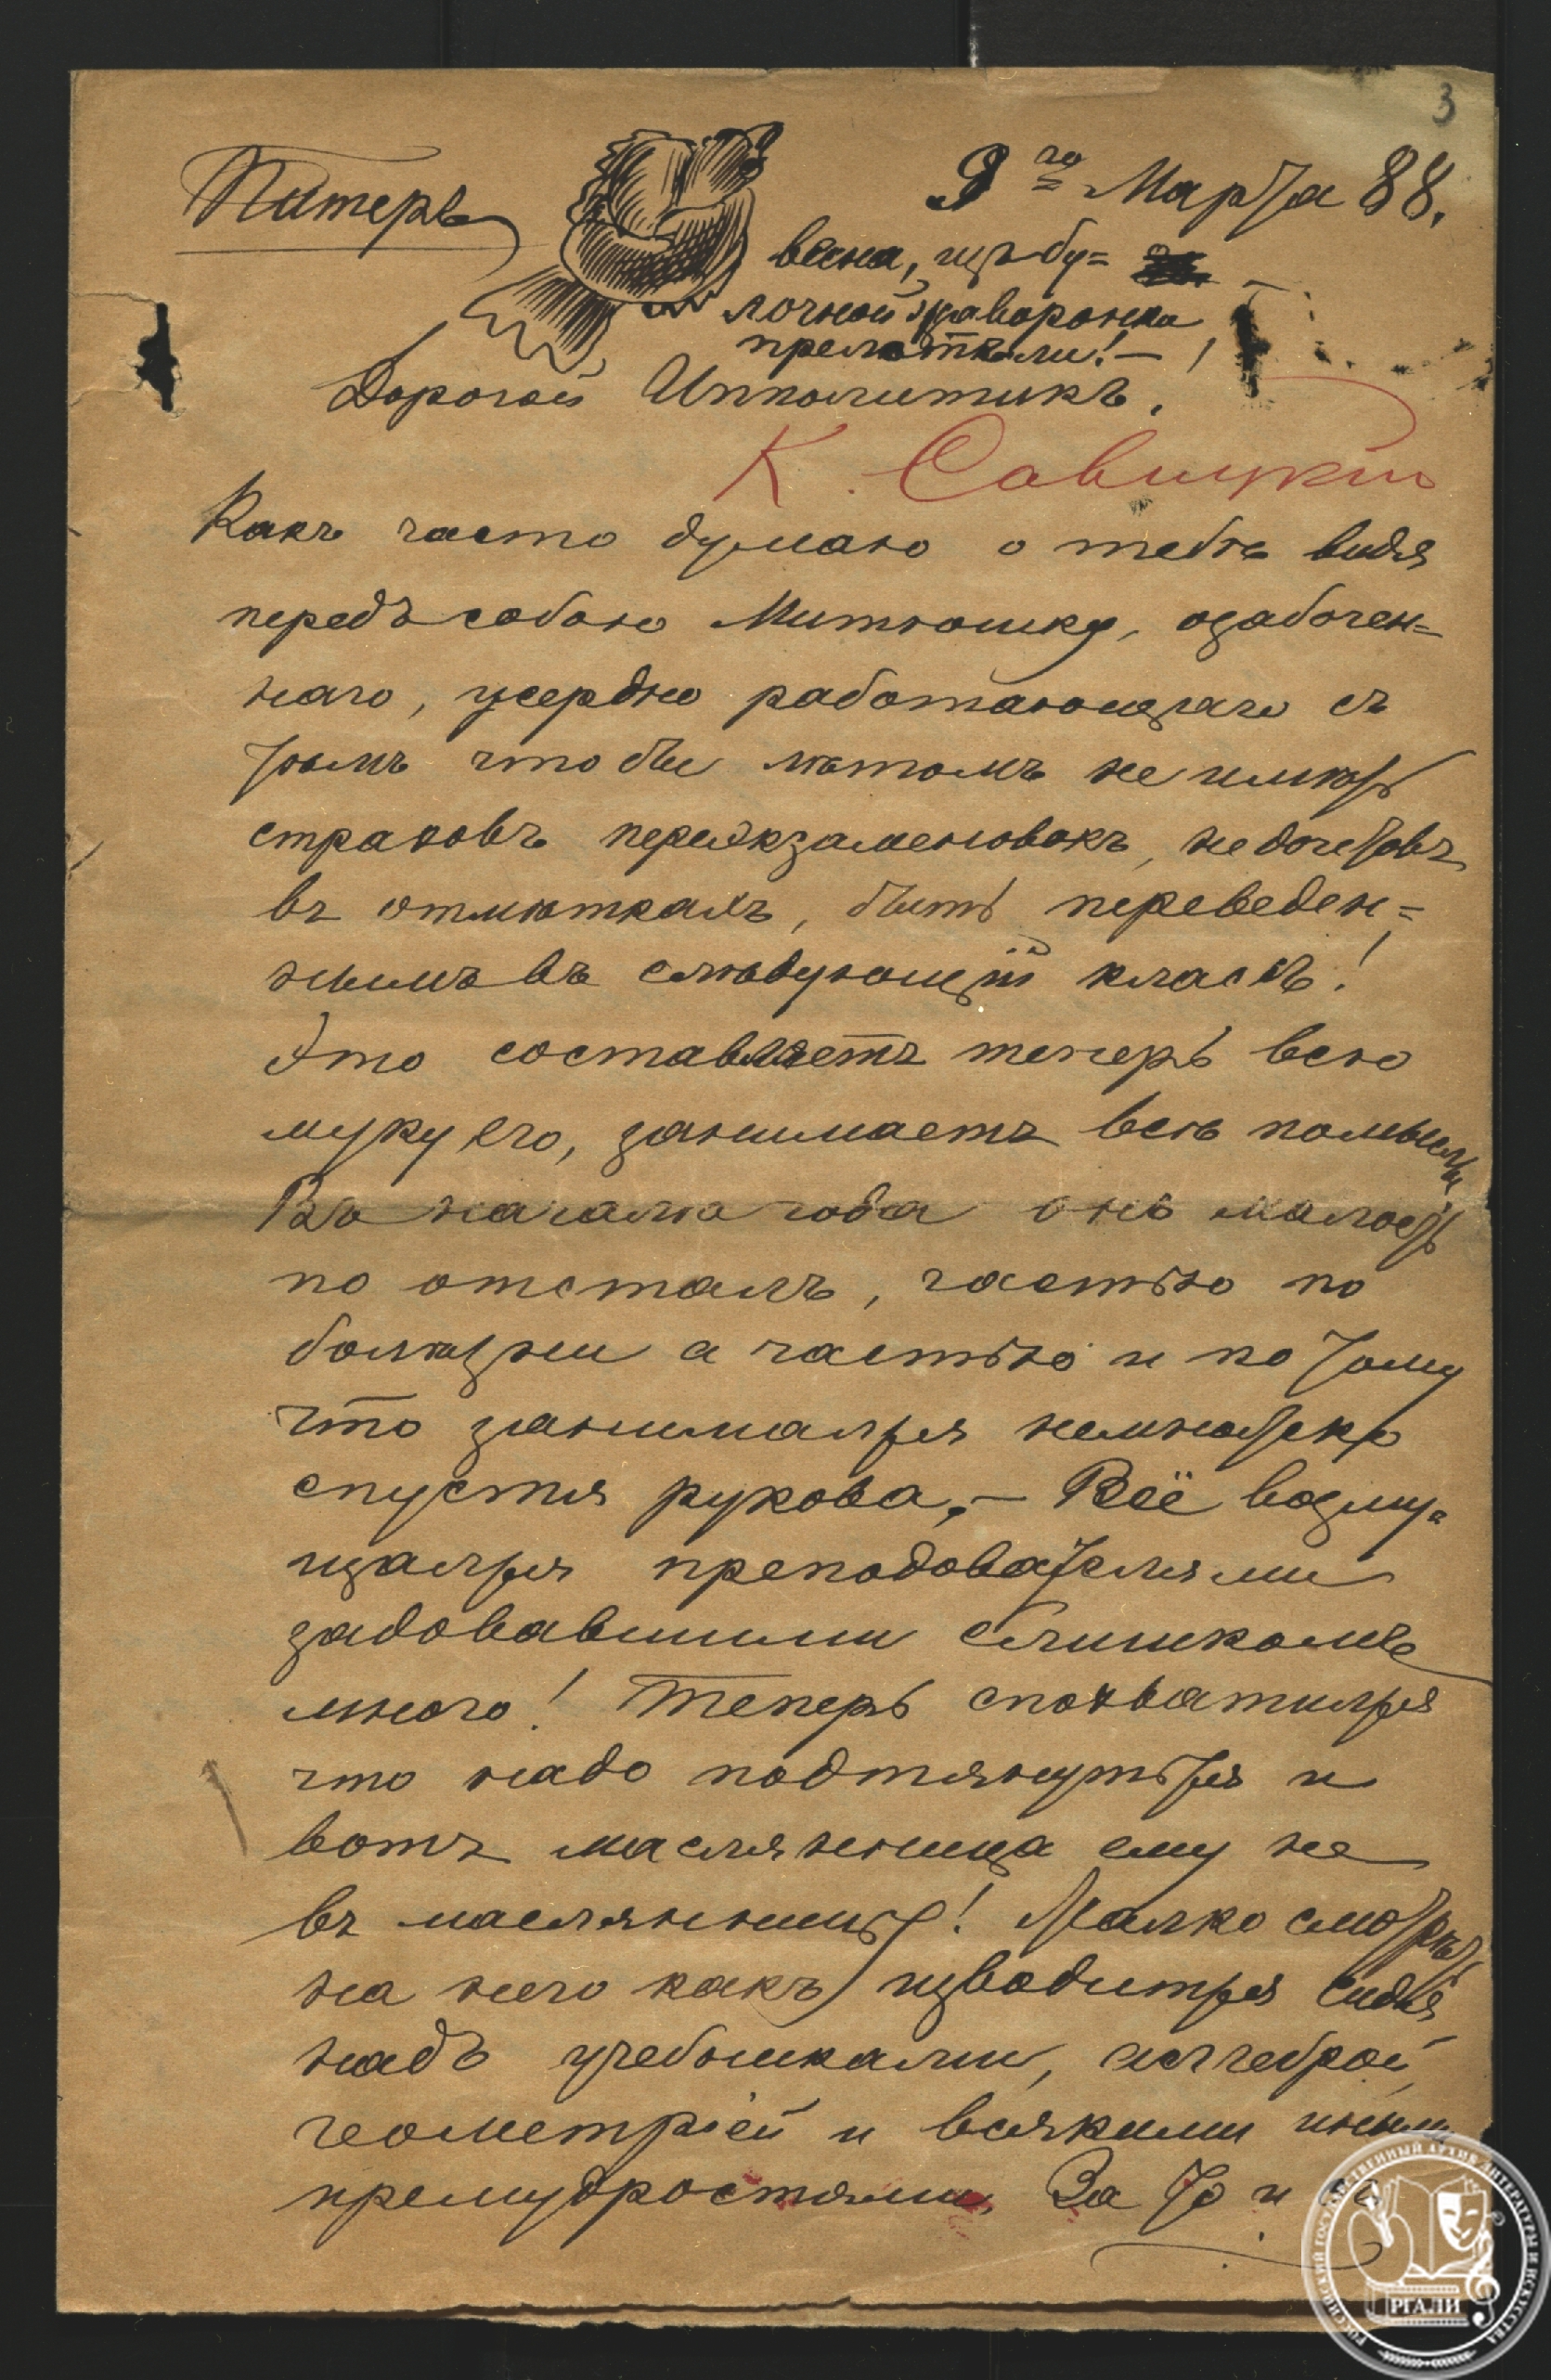 3
Питеръ
9го Марта 88.
весна, изъ бу=
лочной жаворонки
прелѣтели! —
Дорогой Ипполитикъ.
К. Савицкій
Какъ часто думаю о тебѣ видя
передъ собою Митюшку, озабочен=
наго, усердно работающаго съ
тѣмъ что бы лѣтомъ не имѣть
страховъ переэкзаменовокъ, недочетовъ
въ отмѣткахъ, быть переведен=
нымъ въ слѣдующій класъ!
Это составляетъ теперь всю
муку его, занимаетъ всѣ помыслы
Въ началѣ года онъ малость
по отсталъ, частью по
болѣзни а частью и по тому
что занимался немножко
спустя рукова, — Всё возму=
щался преподователями
задававшими слишкомъ
много! Теперь спохватился
что надо подтянуться и
вотъ масляница ему не
въ масляницу! Жалко смотрѣть
на него какъ изводится сидя
надъ учебниками, алгеброй,
геометріей и всякими иными
премудростями. За то и
РОССИЙСКИЙ ГОСУДАРСТВЕННЫЙ АРХИВ ЛИТЕРАТУРЫ И ИСКУССТВА
РГАЛИ